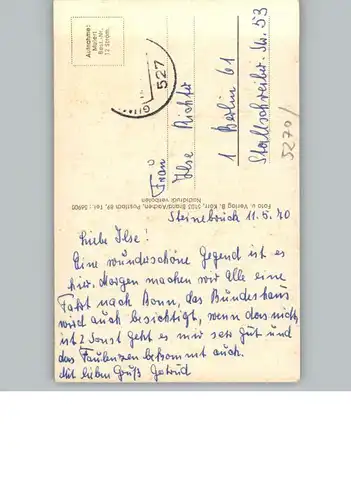 Aufnahme:
Mollerl
Best.-Nr.
12 Ström.
527
Frau
Ilse Richter
1 Berlin 61
Stallschreiber Str. 53
5270/
Foto u. Verlag B. Körr, 5103 Brand/Aachen, Postfach 89, Tel. 56905
Nachdruck verboten
Steinebrück 11.5.70
Liebe Ilse!
Eine wunderschöne Gegend ist es
hier. Morgen machen wir Alle eine
Fahrt nach Bonn, das Bundeshaus
wird auch besichtigt, wenn das nichts
ist? Sonst geht es mir ser gut und
das Faulenzen bekommt auch.
Mit lieben Gruß Getrud